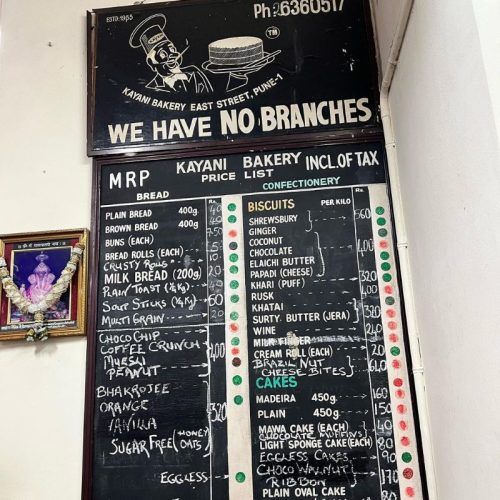 ESTD:1955
Ph:26360517
KAYANI
TM
KAYANI BAKERY EAST STREET, PUNE-1
WE HAVE NO BRANCHES
KAYANI BAKERY
MRP
PRICE LIST
INCL.OF TAX
BREAD
Rs
PLAIN BREAD 400g 40
BROWN BREAD 400g 40
BUNS (EACH)
BREAD ROLLS (EACH)
CRUSTY ROLLS
MILK BREAD (200g) 20
PLAIN TOAST
SOUP STICKS 60
MULTI GRAIN 20
CHOCO CHIP
COFFEE CRUNCH
MUESLI
PEANUT
BHAKROJEE
ORANGE
VANILLA
SUGAR FREE (HONEY OATS)
320
EGGLESS
CONFECTIONERY
BISCUITS PER KILO Rs
SHREWSBURY 560
GINGER
COCONUT
CHOCOLATE 400
ELAICHI BUTTER
PAPADI (CHEESE)
KHARI (PUFF) 320
RUSK
KHATAI
SURTY BUTTER (JERA) 320
WINE 240
MILK FINGER
CREAM ROLL (EACH) 20
BRAZIL NUT
CHEESE BITES
CAKES
MADEIRA 450g 160
PLAIN 450g 150
MAWA CAKE (EACH) 40
CHOCOLATE MUFFINS
LIGHT SPONGE CAKE (EACH) 80
EGGLESS CAKES 90
CHOCO WALNUT 170
RIBBON
PLAIN OVAL CAKE